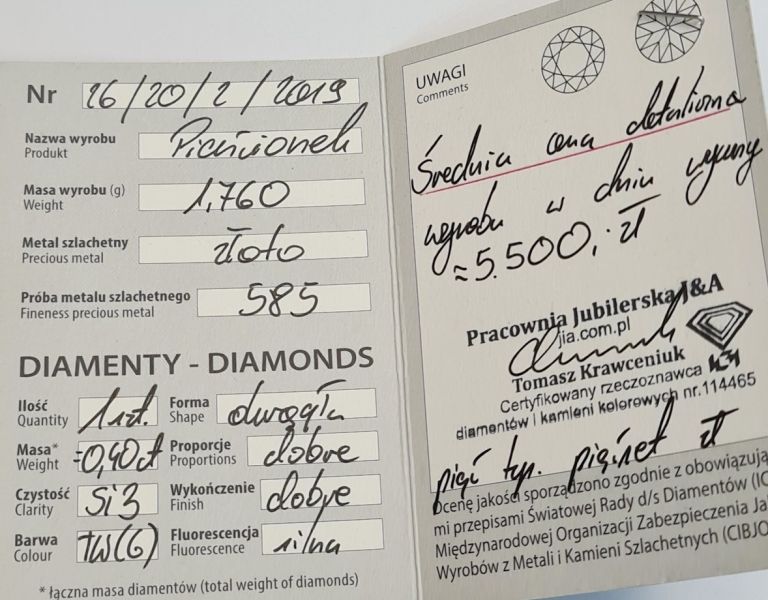 Nr 26/20/2/2019
Nazwa wyrobu Pierścionek
Produkt
Masa wyrobu (g) 1,760
Weight
Metal szlachetny złoto
Precious metal
Próba metalu szlachetnego 585
Fineness precious metal
DIAMENTY - DIAMONDS
Ilość 1 szt. Forma okrągła
Quantity Shape
Masa* =0,40ct Proporcje dobre
Weight Proportions
Czystość Si3 Wykończenie dobre
Clarity Finish
Barwa TW(G) Fluorescencja silna
Colour Fluorescence
* łączna masa diamentów (total weight of diamonds)
UWAGI
Comments
Średnia cena detaliczna
wyrobu w dniu wyceny
≈5.500,- zł
Pracownia Jubilerska J&A
jia.com.pl
Tomasz Krawceniuk
Certyfikowany rzeczoznawca
diamentów i kamieni kolorowych nr.114465
pięć tys. pięćset zł
Ocenę jakości sporządzono zgodnie z obowiązują
mi przepisami Światowej Rady d/s Diamentów (IC
Międzynarodowej Organizacji Zabezpieczenia Ja
Wyrobów z Metali i Kamieni Szlachetnych (CIBJO